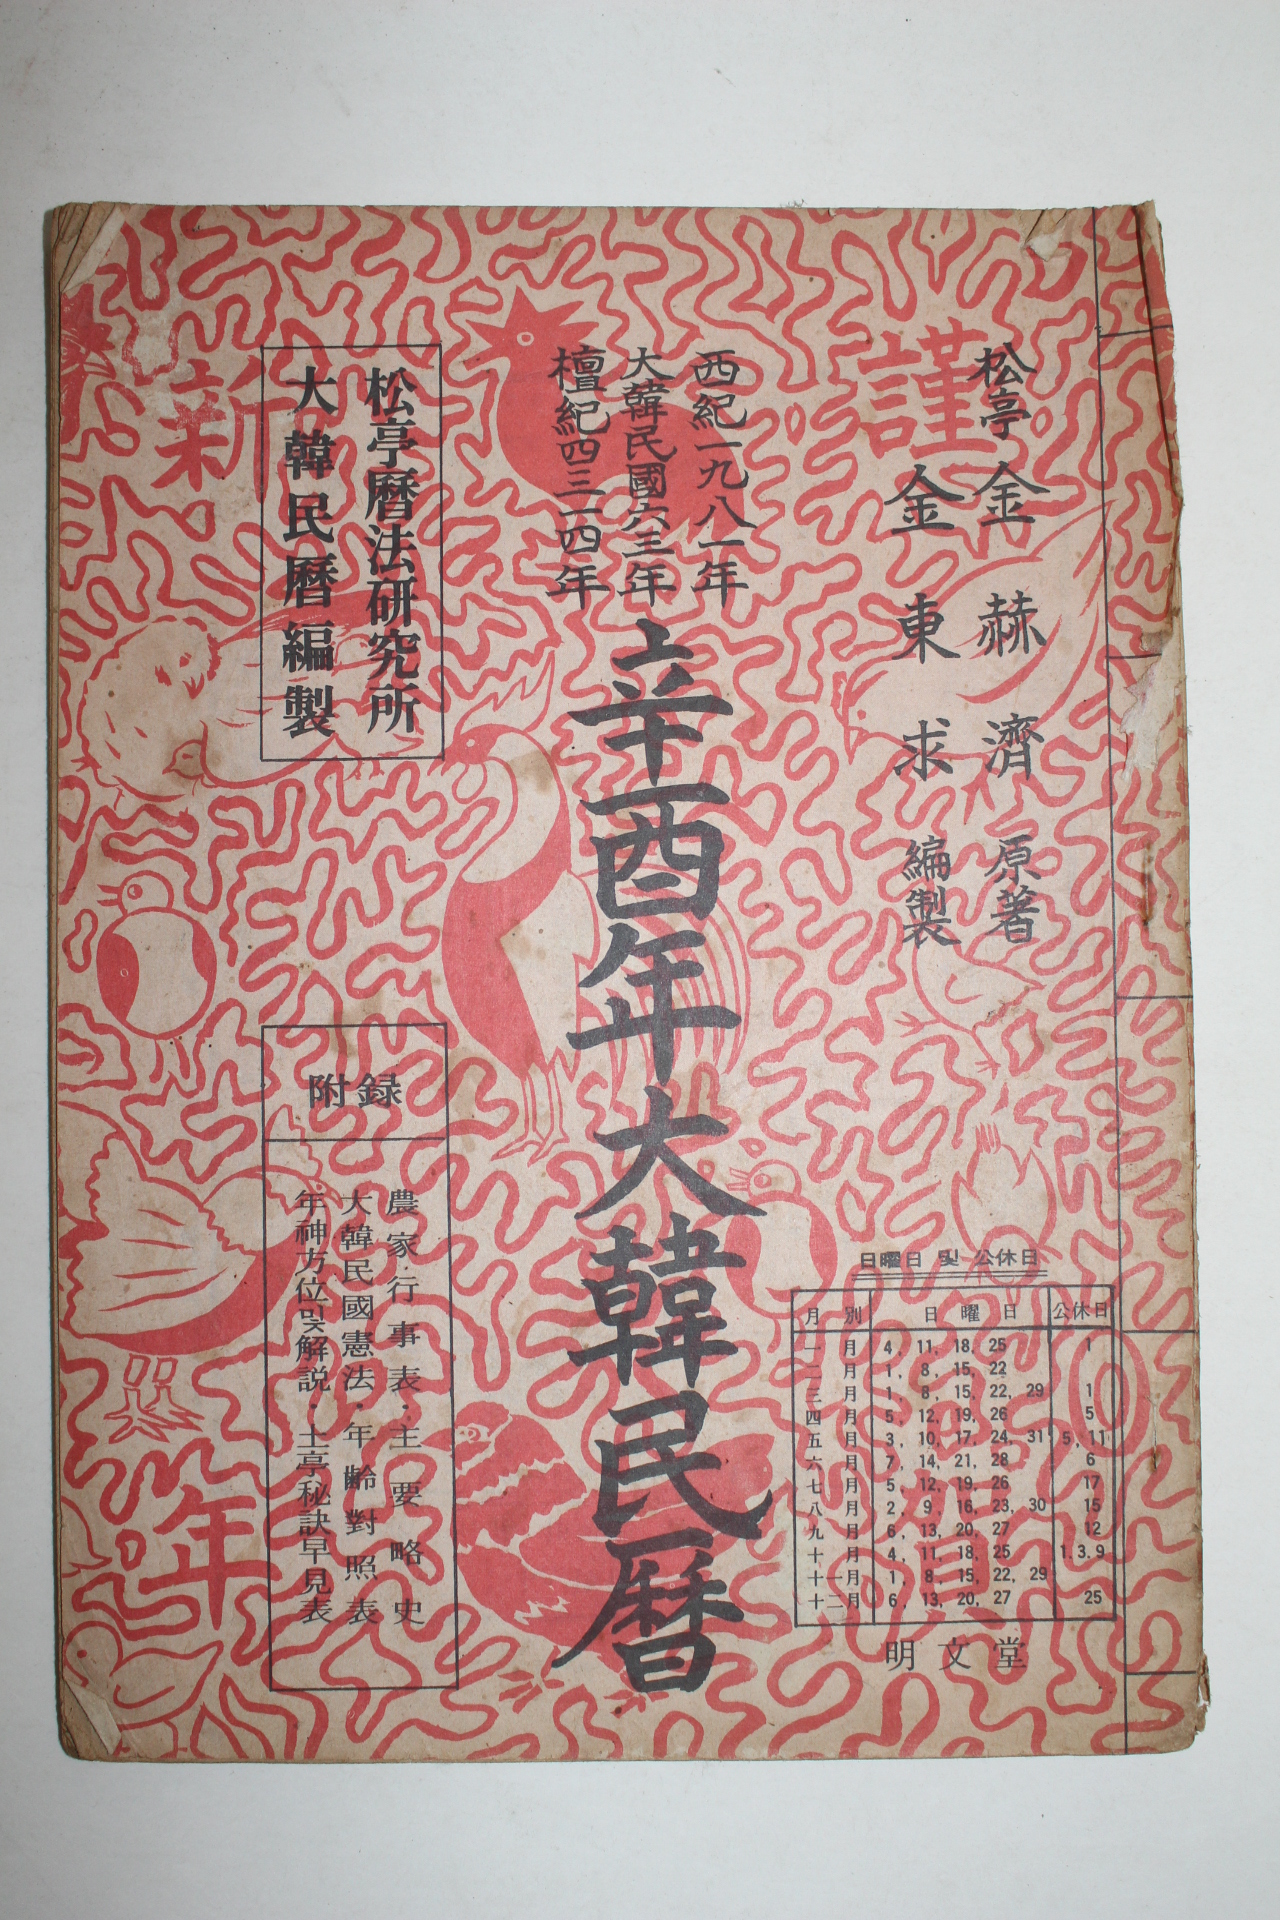 謹
賀
新
年
松亭 金赫濟 原著
金東求 編製
西紀一九八一年
大韓民國六三年
檀紀四三一四年
辛酉年大韓民曆
松亭曆法研究所
大韓民曆編製
附錄
農家行事表·主要略史
大韓民國憲法·年齡對照表
年神方位및解説·土亭秘訣早見表
日曜日 및 公休日
月別 日曜日 公休日
一月 4, 11, 18, 25 1
二月 1, 8, 15, 22
三月 1, 8, 15, 22, 29 1
四月 5, 12, 19, 26 5
五月 3, 10, 17, 24, 31 5, 11
六月 7, 14, 21, 28 6
七月 5, 12, 19, 26 17
八月 2, 9, 16, 23, 30 15
九月 6, 13, 20, 27 12
十月 4, 11, 18, 25 1.3.9
十一月 1, 8, 15, 22, 29
十二月 6, 13, 20, 27 25
明文堂